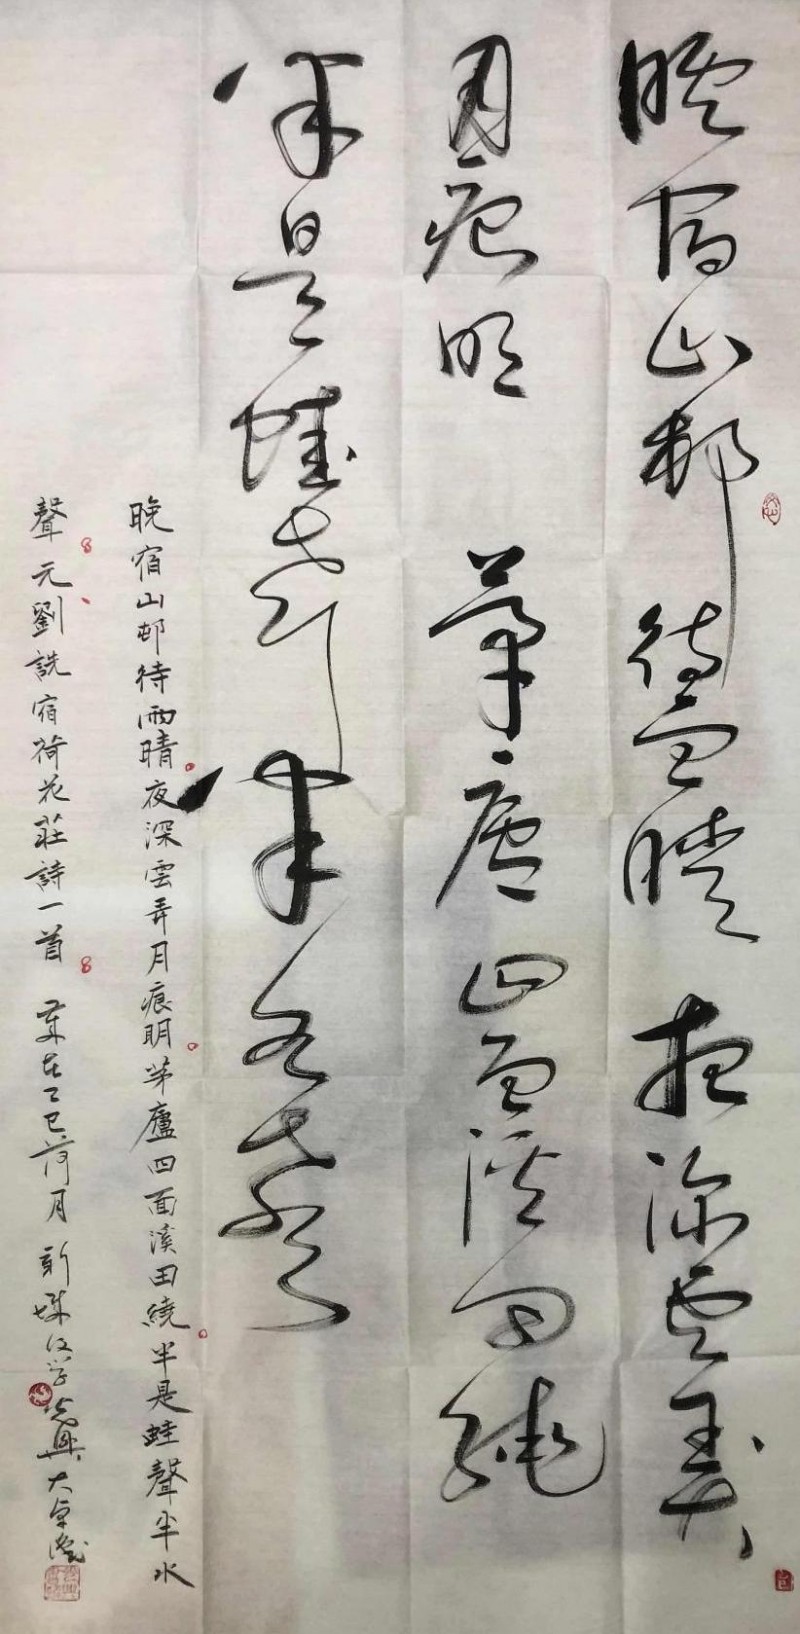 晚宿山邨待雨晴夜深雲弄
月痕明茅廬四面溪田繞
半是蛙聲半水聲
晚宿山邨待雨晴夜深雲弄月痕明茅廬四面溪田繞半是蛙聲半水
聲元劉詵宿荷花莊詩一首 歲在乙巳荷月